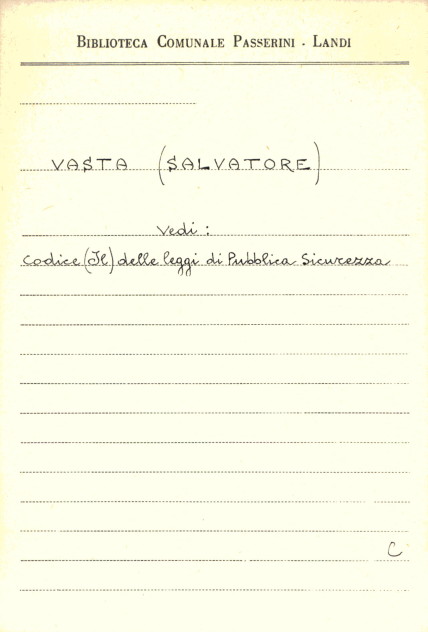 BIBLIOTECA COMUNALE PASSERINI - LANDI
VASTA (SALVATORE)
Vedi:
Codice (Il) delle leggi di Pubblica Sicurezza
C